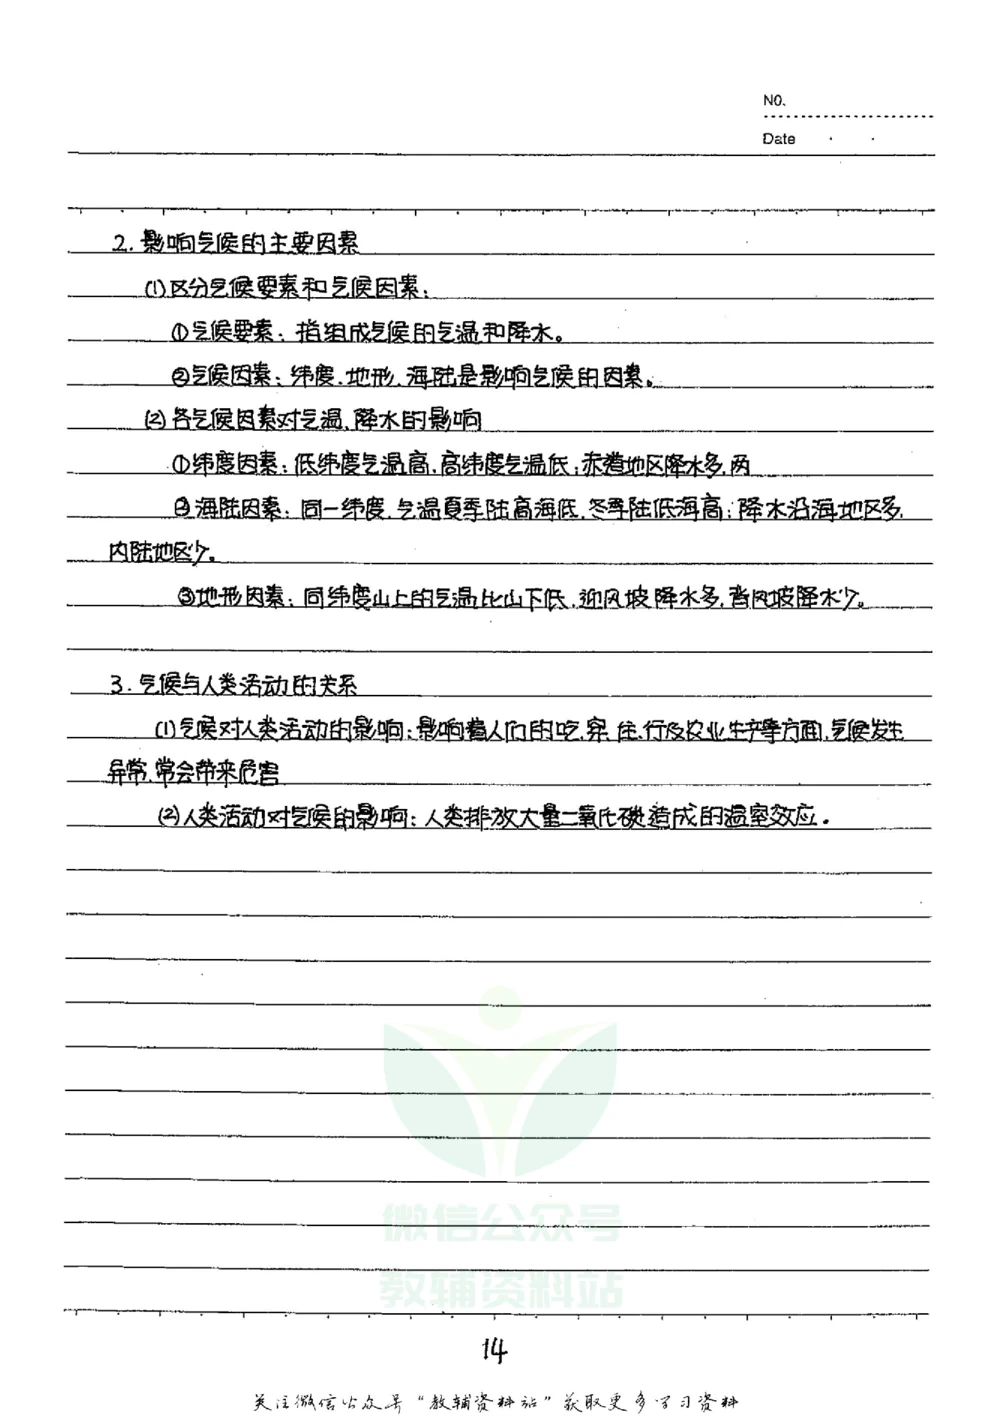 NO.
Date
2.影响气候的主要因素
(1)区分气候要素和气候因素:
①气候要素:指组成气候的气温和降水。
②气候因素:纬度、地形、海陆是影响气候的因素。
(2)各气候因素对气温、降水的影响
①纬度因素:低纬度气温高,高纬度气温低;赤道地区降水多,两
②海陆因素:同一纬度,气温夏季陆高海低,冬季陆低海高;降水沿海地区多,
内陆地区少。
③地形因素:同纬度山上的气温比山下低,迎风坡降水多,背风坡降水少。
3.气候与人类活动的关系
(1)气候对人类活动的影响:影响着人们的吃、穿、住、行及农业生产等方面,气候发生
异常,常会带来危害
(2)人类活动对气候的影响:人类排放大量二氧化碳造成的温室效应.
微信公众号
教辅资料站
14
关注微信公众号“教辅资料站”获取更多学习资料